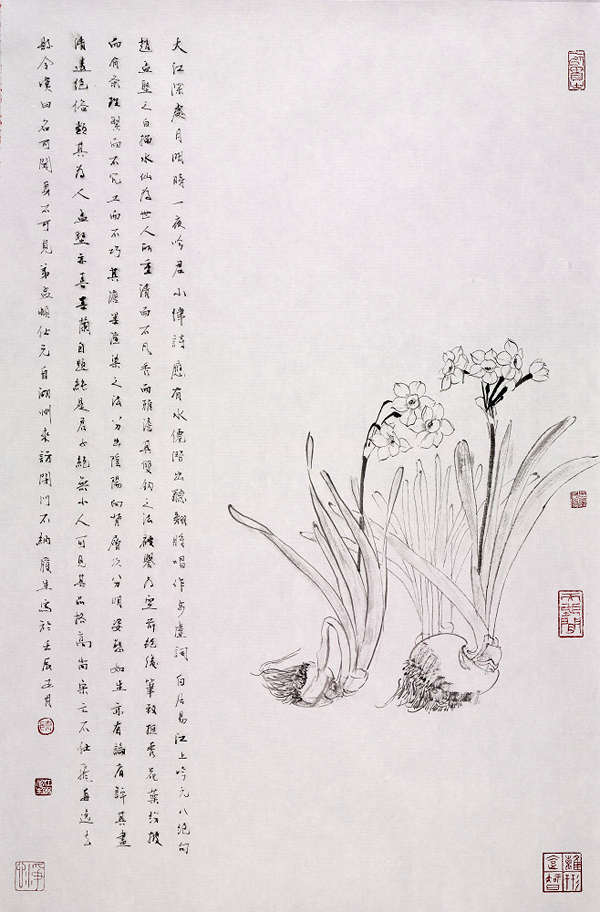 大江深處月明時一夜吟君小律詩應有水僊潛出聽翻將唱作步虛詞白居易江上吟元八絕句
趙孟堅之白描水仙為世人所重清而不凡秀而雅淡其雙鉤之法被譽為空前絕後筆致挺秀花葉紛披
而有條理繁而不冗工而不巧其淡墨渲染之法分出陰陽向背層次分明姿態如生亦有論者評其畫
清遠絕俗類其為人孟堅亦善墨蘭自題純是君子絕無小人可見其品格高尚宋亡不仕飛舟遠去
縣令嘆曰名可聞身不可見弟孟頫仕元自湖州來訪閉門不納履生寫於壬辰正月